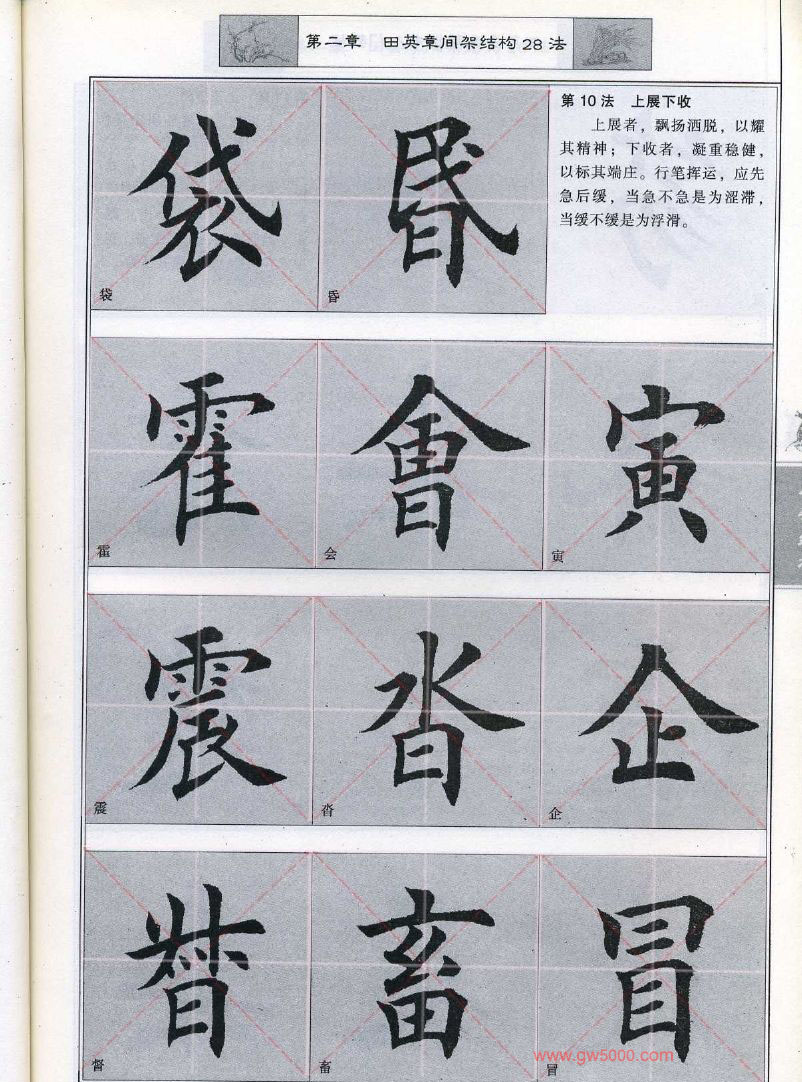 第二章 田英章间架结构28法
第10法 上展下收
上展者，飘扬洒脱，以耀
其精神；下收者，凝重稳健，
以标其端庄。行笔挥运，应先
急后缓，当急不急是为涩滞，
当缓不缓是为浮滑。
袋 昬
袋 昏
霍 會 寅
霍 会 寅
震 沓 企
震 沓 企
督 畜 冒
督 畜 冒
www.gw5000.com